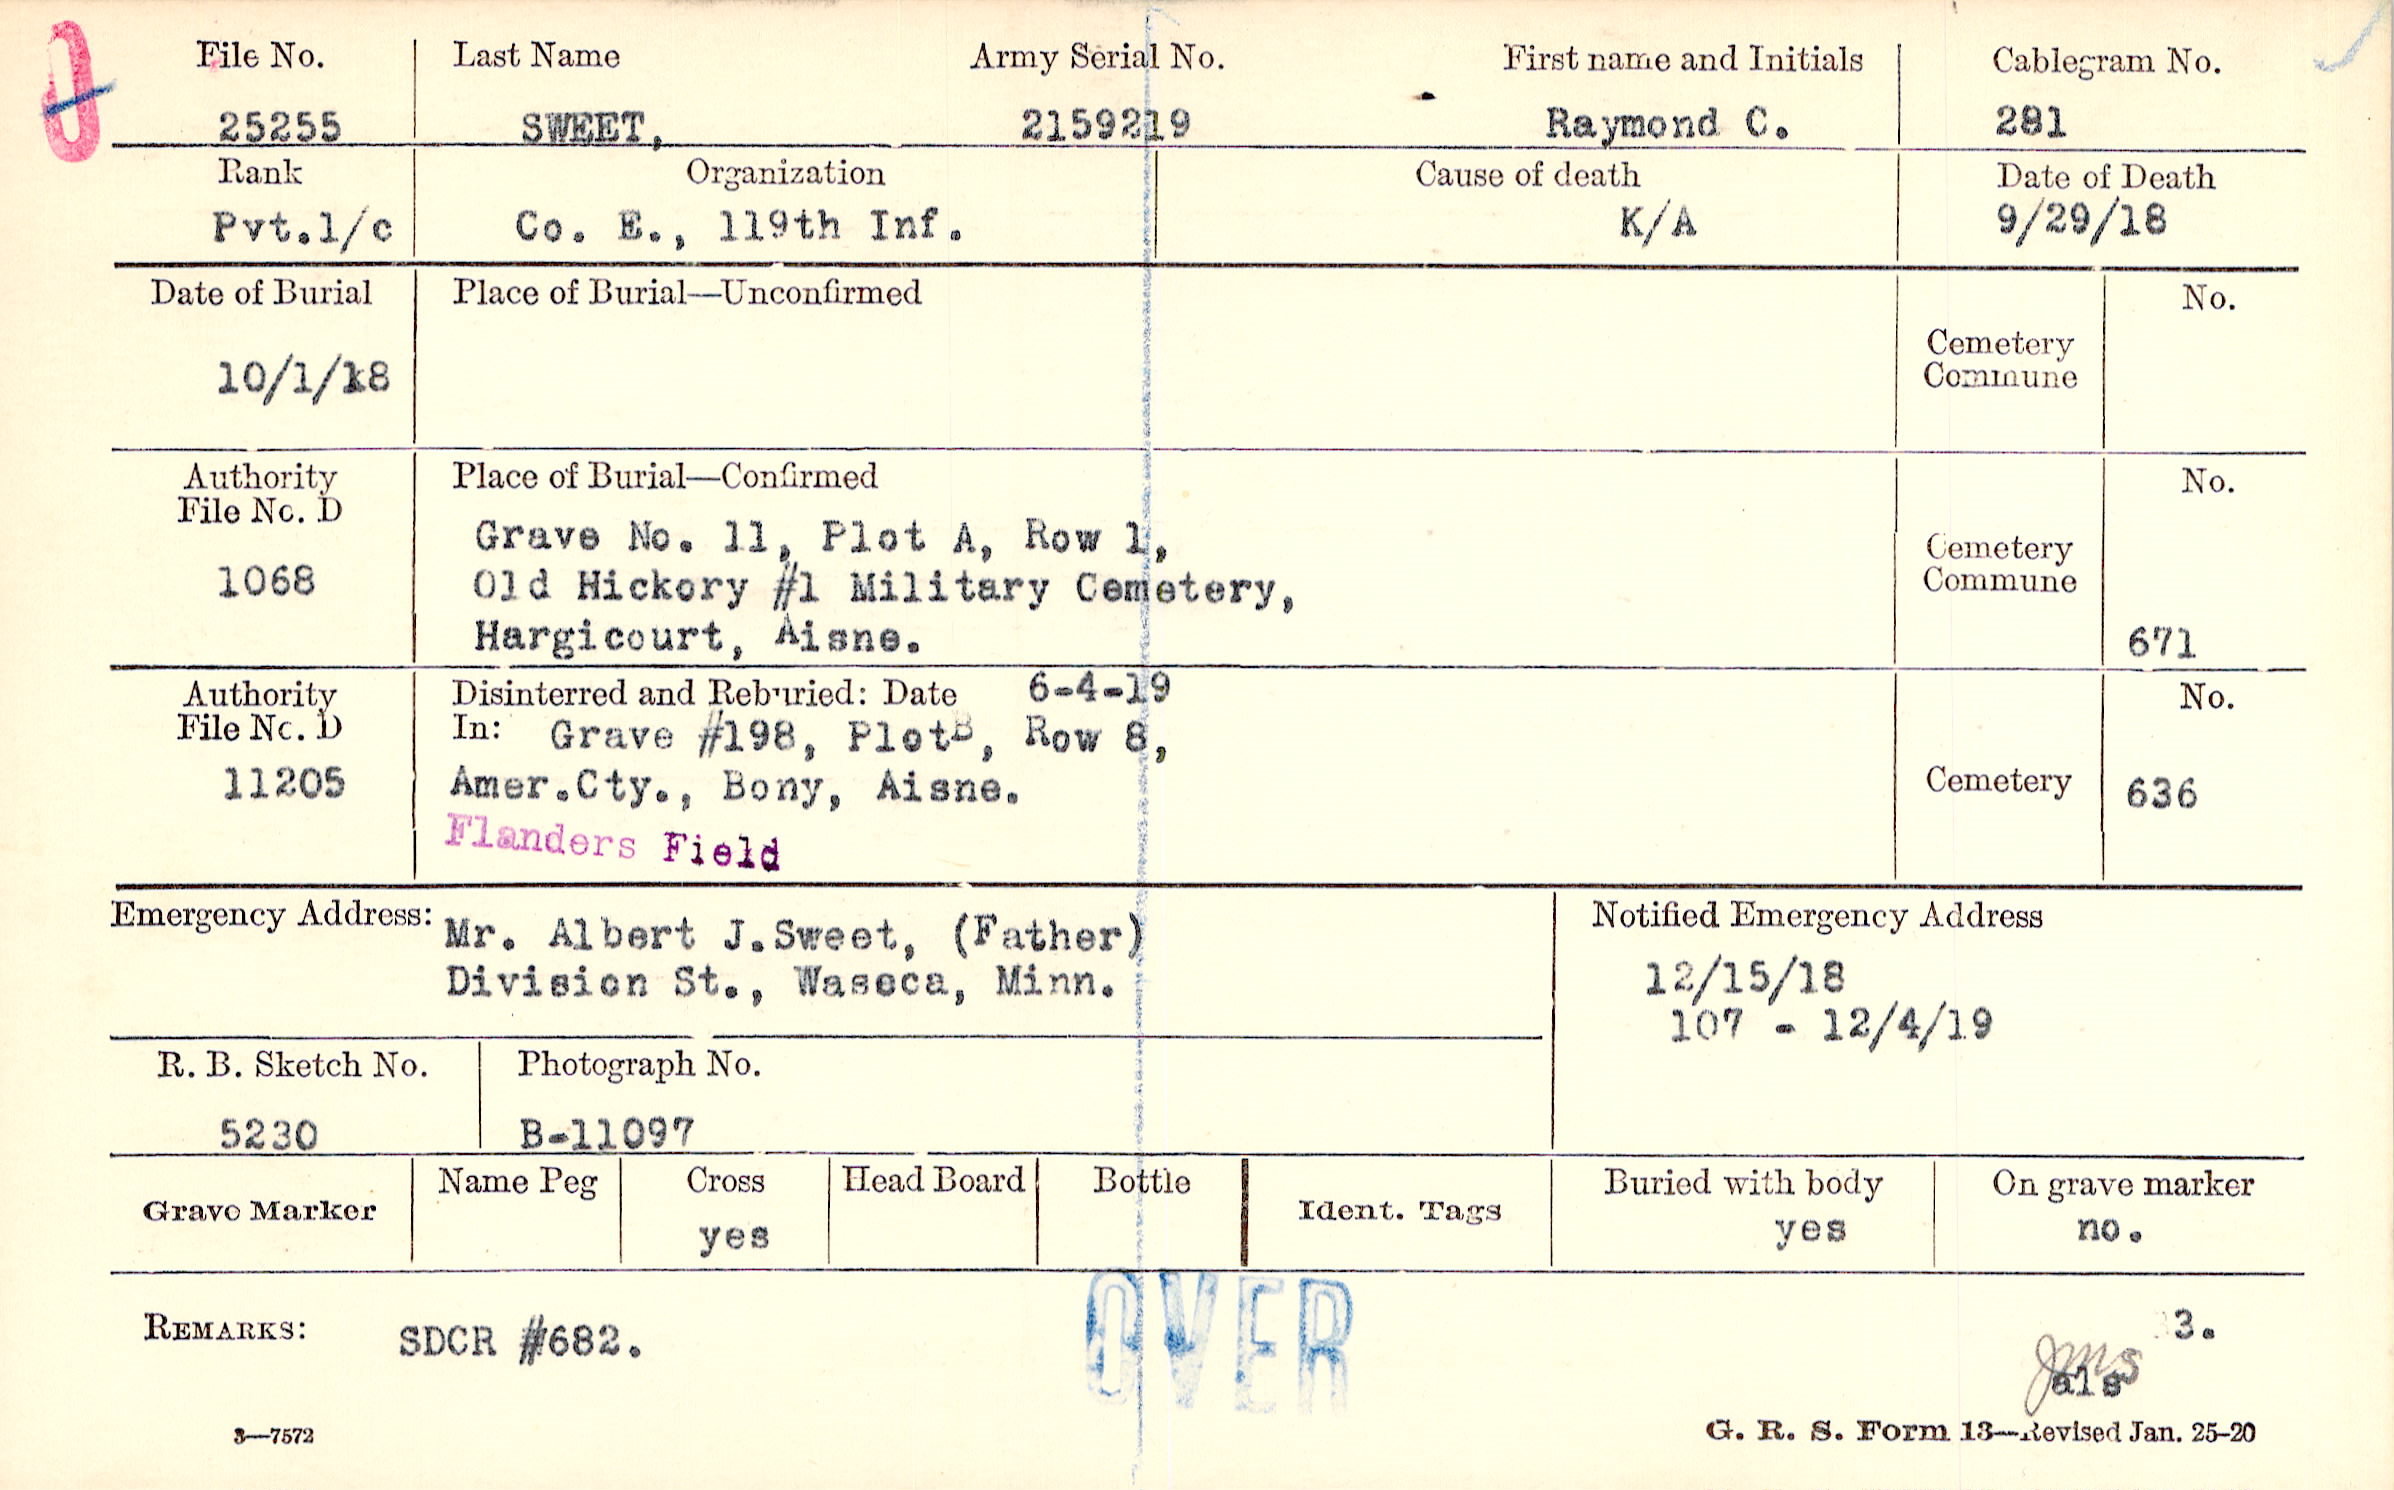 File No. Last Name Army Serial No. First name and Initials Cablegram No.
25255 SWEET, 2159219 Raymond C. 281
Rank Organization Cause of death Date of Death
Pvt.1/c Co. E., 119th Inf. K/A 9/29/18
Date of Burial Place of Burial—Unconfirmed No.
Cemetery
Commune
10/1/18
Authority Place of Burial—Confirmed No.
File No. D
Grave No. 11, Plot A, Row 1,
Cemetery
Commune
1068 Old Hickory #1 Military Cemetery,
Hargicourt, Aisne. 671
Authority Disinterred and Reburied: Date 6-4-19 No.
File No. D In: Grave #198, Plot B, Row 8,
11205 Amer.Cty., Bony, Aisne. Cemetery 636
Flanders Field
Emergency Address: Mr. Albert J.Sweet, (Father) Notified Emergency Address
Division St., Waseca, Minn. 12/15/18
107 - 12/4/19
R. B. Sketch No. Photograph No.
5230 B-11097
Grave Marker Name Peg Cross Head Board Bottle Ident. Tags Buried with body On grave marker
yes yes no.
OVER
REMARKS: SDCR #682. 3.
jms
als
3—7572 G. R. S. Form 13—Revised Jan. 25-20